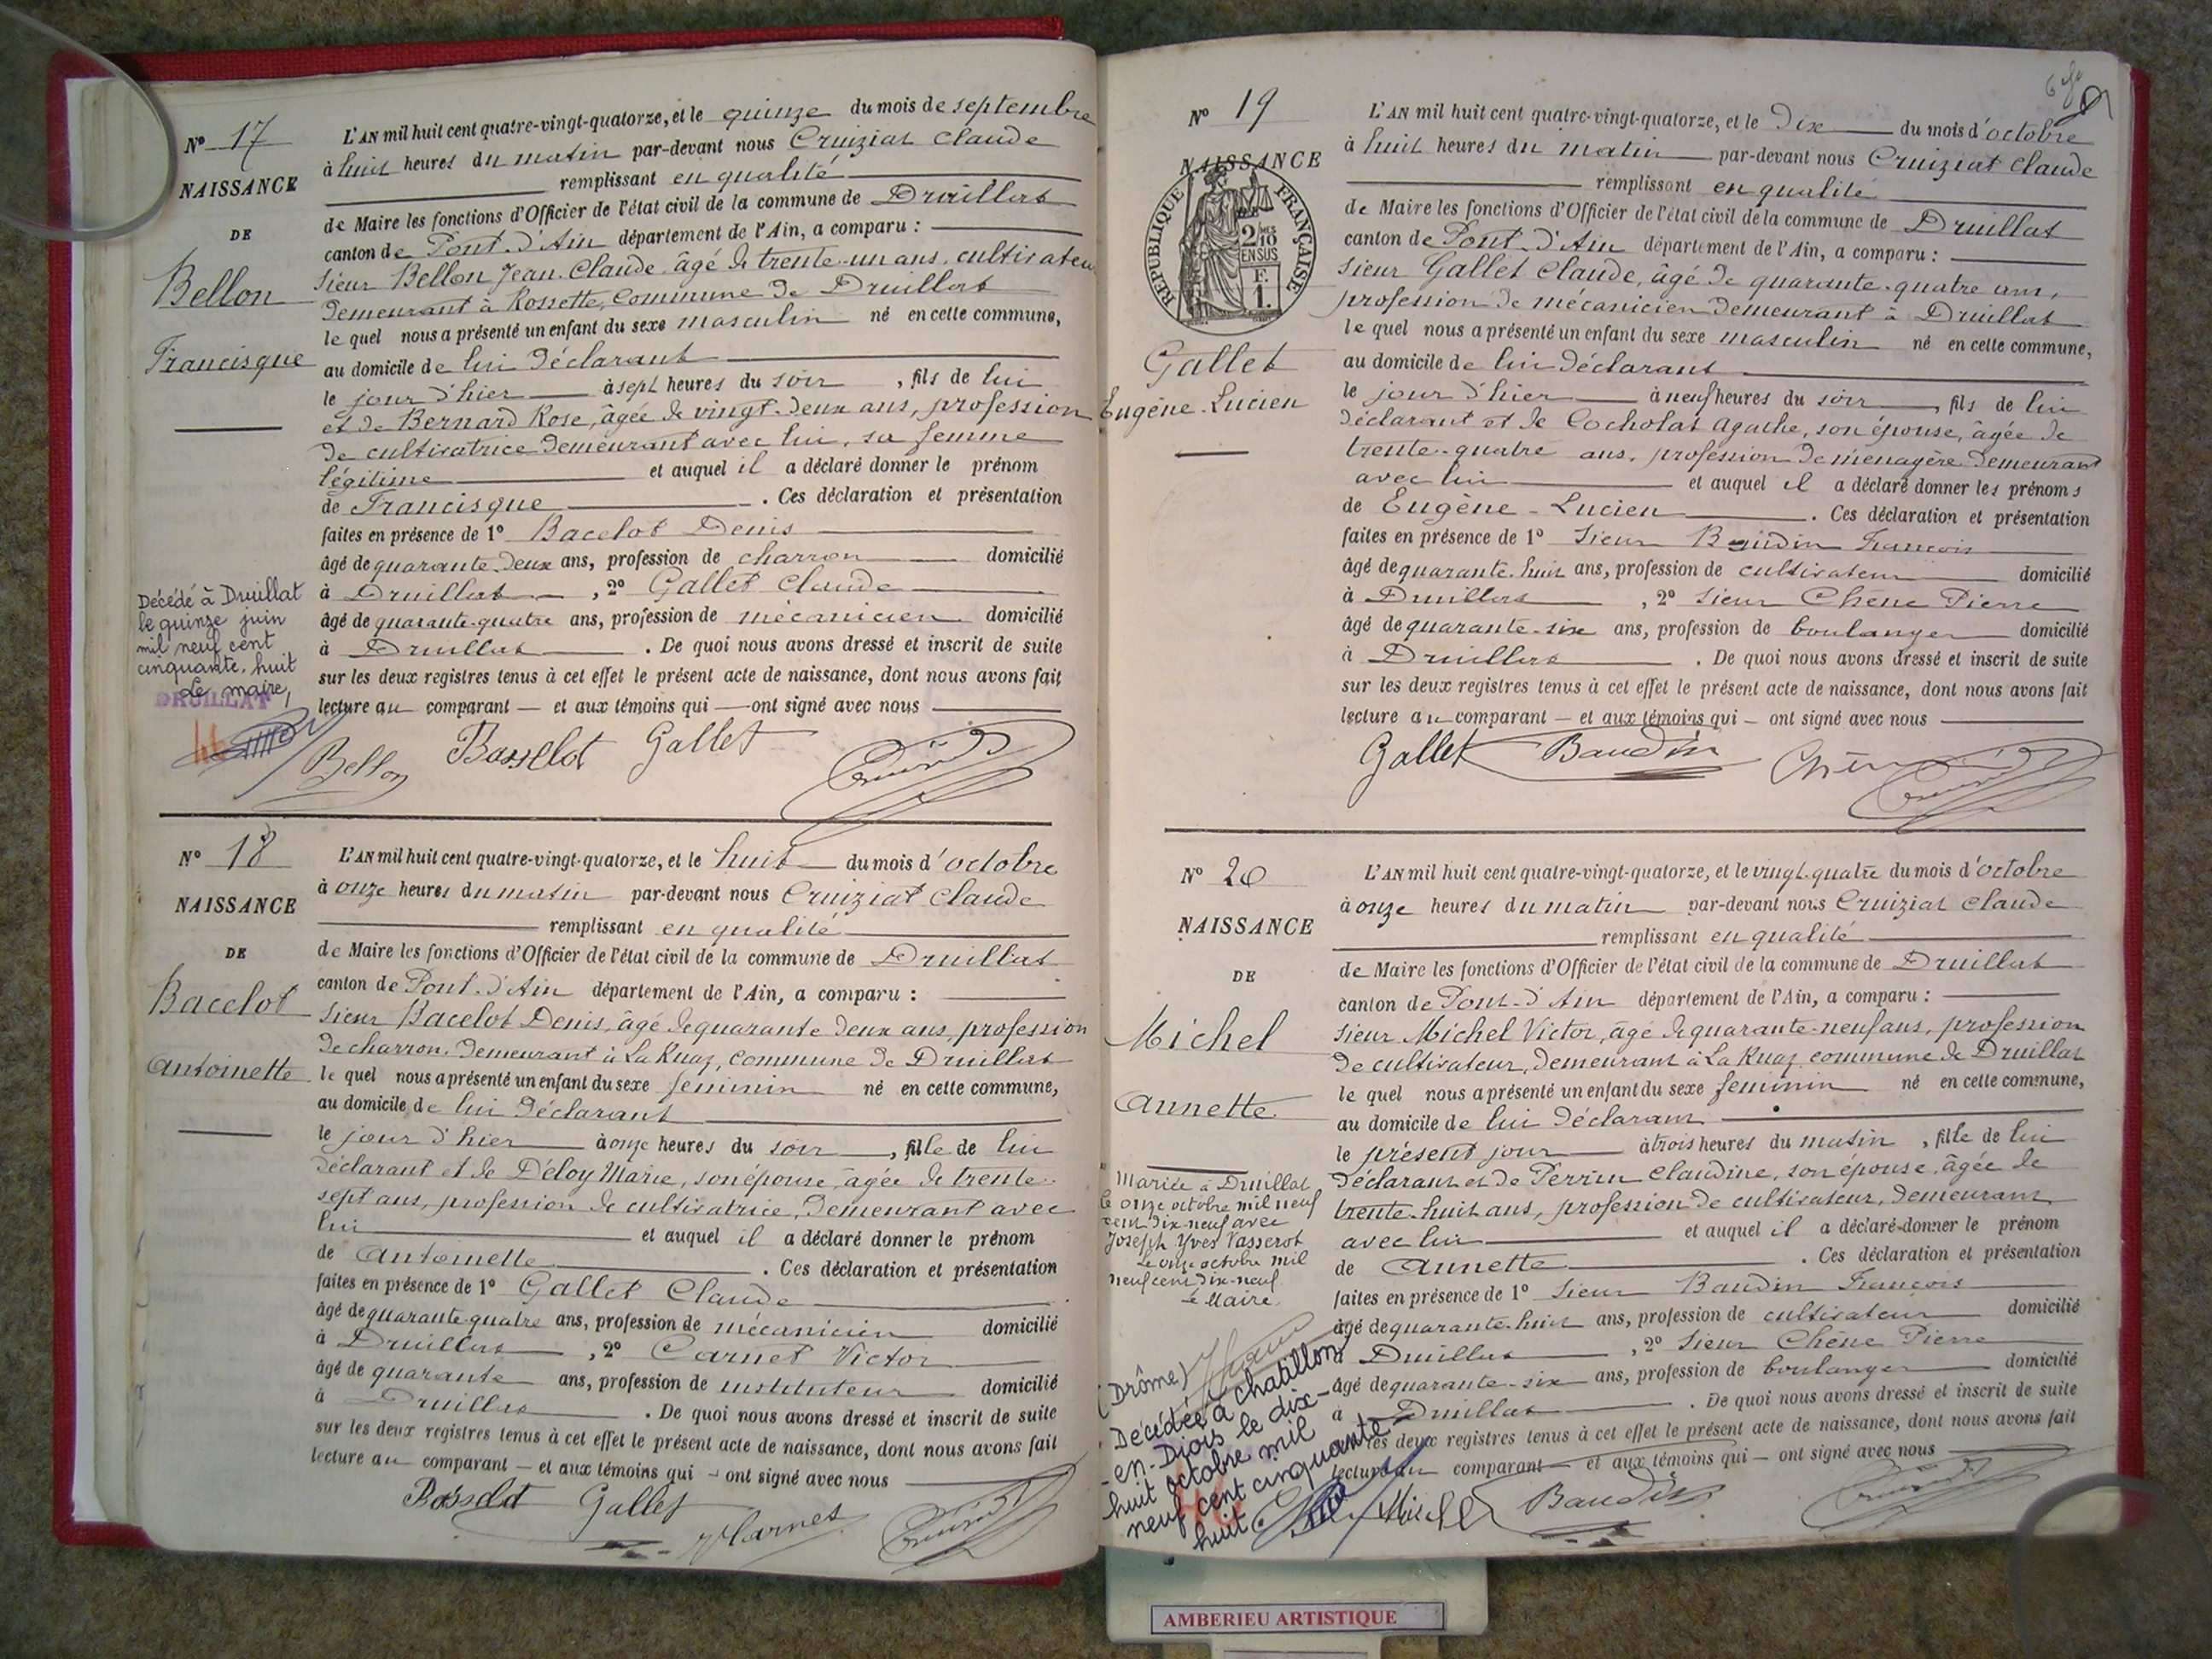 N° 17
NAISSANCE
DE
Bellon
Francisque
L'AN mil huit cent quatre-vingt-quatorze, et le quinze du mois de septembre
à huit heures du matin par-devant nous Cruiziat Claude
remplissant en qualité
de Maire les fonctions d'Officier de l'état civil de la commune de Druillat
canton de Pont-d'Ain département de l'Ain, a comparu :
Sieur Bellon Jean-Claude, âgé de trente-un ans, cultivateur
demeurant à Rossette, commune de Druillat
le quel nous a présenté un enfant du sexe masculin né en cette commune,
au domicile de lui déclarant
le jour d'hier à sept heures du soir, fils de lui
et de Bernard Rose, âgée de vingt-deux ans, profession
de cultivatrice demeurant avec lui, sa femme
légitime et auquel il a déclaré donner le prénom
de Francisque. Ces déclaration et présentation
faites en présence de 1° Bacelot Denis
âgé de quarante-deux ans, profession de charron domicilié
à Druillat, 2° Gallet Claude
âgé de quarante-quatre ans, profession de mécanicien domicilié
à Druillat. De quoi nous avons dressé et inscrit de suite
sur les deux registres tenus à cet effet le présent acte de naissance, dont nous avons fait
lecture au comparant — et aux témoins qui — ont signé avec nous
Décédé à Druillat
le quinze juin
mil neuf cent
cinquante-huit
Le maire,
DRUILLAT
Bellon Basselot Gallet
N° 18
NAISSANCE
DE
Bacelot
Antoinette
L'AN mil huit cent quatre-vingt-quatorze, et le huit du mois d'octobre
à onze heures du matin par-devant nous Cruiziat Claude
remplissant en qualité
de Maire les fonctions d'Officier de l'état civil de la commune de Druillat
canton de Pont-d'Ain département de l'Ain, a comparu :
Sieur Bacelot Denis, âgé de quarante deux ans, profession
de charron, demeurant à La Ruaz, commune de Druillat
le quel nous a présenté un enfant du sexe feminin né en cette commune,
au domicile de lui déclarant
le jour d'hier à onze heures du soir, fille de lui
déclarant et de Déloy Marie, son épouse, âgée de trente-
sept ans, profession de cultivatrice, demeurant avec
lui et auquel il a déclaré donner le prénom
de Antoinette. Ces déclaration et présentation
faites en présence de 1° Gallet Claude
âgé de quarante-quatre ans, profession de mécanicien domicilié
à Druillat, 2° Carnet Victor
âgé de quarante ans, profession de instituteur domicilié
à Druillat. De quoi nous avons dressé et inscrit de suite
sur les deux registres tenus à cet effet le présent acte de naissance, dont nous avons fait
lecture au comparant — et aux témoins qui — ont signé avec nous
Basselot Gallet VCarnet
N° 19
NAISSANCE
RÉPUBLIQUE FRANÇAISE
2/10
EN SUS
F.
1.
Gallet
Eugène-Lucien
L'AN mil huit cent quatre-vingt-quatorze, et le Dix du mois d'octobre
à huit heures du matin par-devant nous Cruiziat Claude
remplissant en qualité
de Maire les fonctions d'Officier de l'état civil de la commune de Druillat
canton de Pont-d'Ain département de l'Ain, a comparu :
Sieur Gallet Claude, âgé de quarante-quatre ans,
profession de mécanicien demeurant à Druillat
le quel nous a présenté un enfant du sexe masculin né en cette commune,
au domicile de lui déclarant
le jour d'hier à neuf heures du soir, fils de lui
déclarant et de Cocholat Agathe, son épouse, âgée de
trente-quatre ans, profession de ménagère demeurant
avec lui et auquel il a déclaré donner les prénoms
de Eugène-Lucien. Ces déclaration et présentation
faites en présence de 1° Sieur Baudin François
âgé de quarante-huit ans, profession de cultivateur domicilié
à Druillat, 2° Sieur Chêne Pierre
âgé de quarante-six ans, profession de boulanger domicilié
à Druillat. De quoi nous avons dressé et inscrit de suite
sur les deux registres tenus à cet effet le présent acte de naissance, dont nous avons fait
lecture au comparant — et aux témoins qui — ont signé avec nous
Gallet Baudin Chêne
N° 20
NAISSANCE
DE
Michel
Annette
L'AN mil huit cent quatre-vingt-quatorze, et le vingt-quatre du mois d'octobre
à onze heures du matin par-devant nous Cruiziat Claude
remplissant en qualité
de Maire les fonctions d'Officier de l'état civil de la commune de Druillat
canton de Pont-d'Ain département de l'Ain, a comparu :
Sieur Michel Victor, âgé de quarante-neuf ans, profession
de cultivateur, demeurant à La Ruaz commune de Druillat
le quel nous a présenté un enfant du sexe feminin né en cette commune,
au domicile de lui déclarant
le présent jour à trois heures du matin, fille de lui
déclarant et de Perrin Claudine, son épouse, âgée de
trente-huit ans, profession de cultivateur, demeurant
avec lui et auquel il a déclaré donner le prénom
de Annette. Ces déclaration et présentation
faites en présence de 1° Sieur Baudin François
âgé de quarante-huit ans, profession de cultivateur domicilié
à Druillat, 2° Sieur Chêne Pierre
âgé de quarante-six ans, profession de boulanger domicilié
à Druillat. De quoi nous avons dressé et inscrit de suite
les deux registres tenus à cet effet le présent acte de naissance, dont nous avons fait
lecture au comparant — et aux témoins qui — ont signé avec nous
Mariée à Druillat
le onze octobre mil neuf
cent dix-neuf avec
Joseph Yves Vasserot
Le onze octobre mil
neuf cent dix-neuf
Le Maire
(Drôme)
Décédée à Chatillon
-en-Diois le dix-
huit octobre mil
neuf cent cinquante-
huit
Michel Baudin
AMBERIEU ARTISTIQUE